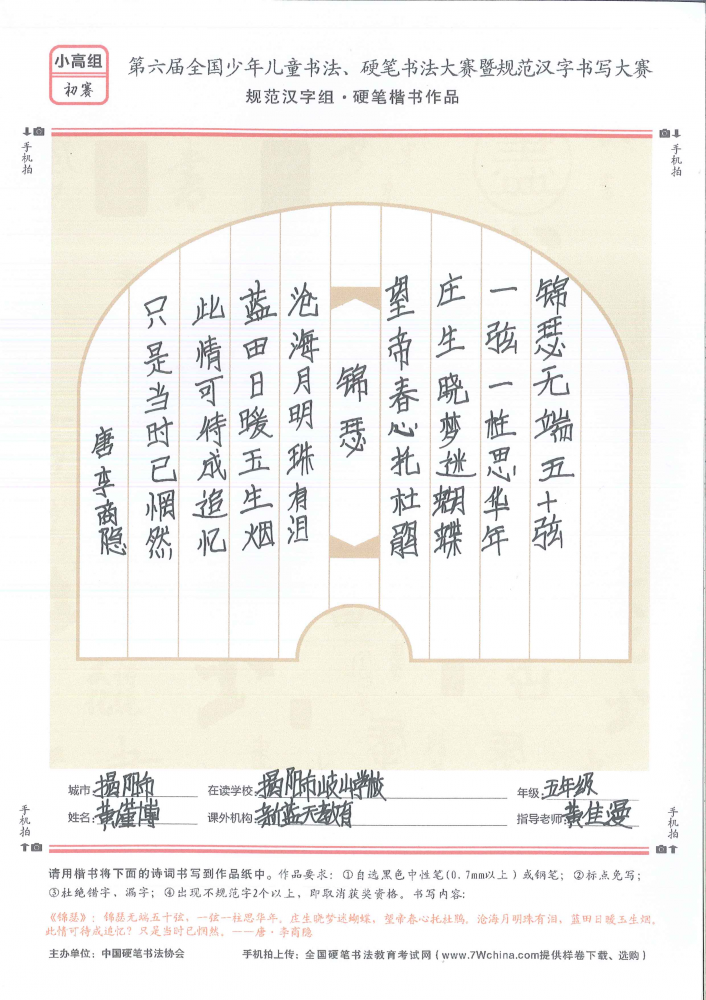 小高组
初赛
第六届全国少年儿童书法、硬笔书法大赛暨规范汉字书写大赛
规范汉字组·硬笔楷书作品
手机拍
手机拍
锦瑟无端五十弦
一弦一柱思华年
庄生晓梦迷蝴蝶
望帝春心托杜鹃
锦瑟
沧海月明珠有泪
蓝田日暖玉生烟
此情可待成追忆
只是当时已惘然
唐李商隐
城市:揭阳市 在读学校:揭阳市岐山学校 年级:五年级
姓名:黄 博 课外机构:新蓝天教育 指导老师:黄佳漫
手机拍
手机拍
请用楷书将下面的诗词书写到作品纸中。作品要求:①自选黑色中性笔(0.7mm以上)或钢笔;②标点免写;
③杜绝错字、漏字;④出现不规范字2个以上,即取消获奖资格。书写内容:
《锦瑟》:锦瑟无端五十弦,一弦一柱思华年。庄生晓梦迷蝴蝶,望帝春心托杜鹃。沧海月明珠有泪,蓝田日暖玉生烟。
此情可待成追忆?只是当时已惘然。——唐·李商隐
主办单位:中国硬笔书法协会 手机拍上传:全国硬笔书法教育考试网(www.7Wchina.com提供样卷下载、选购)